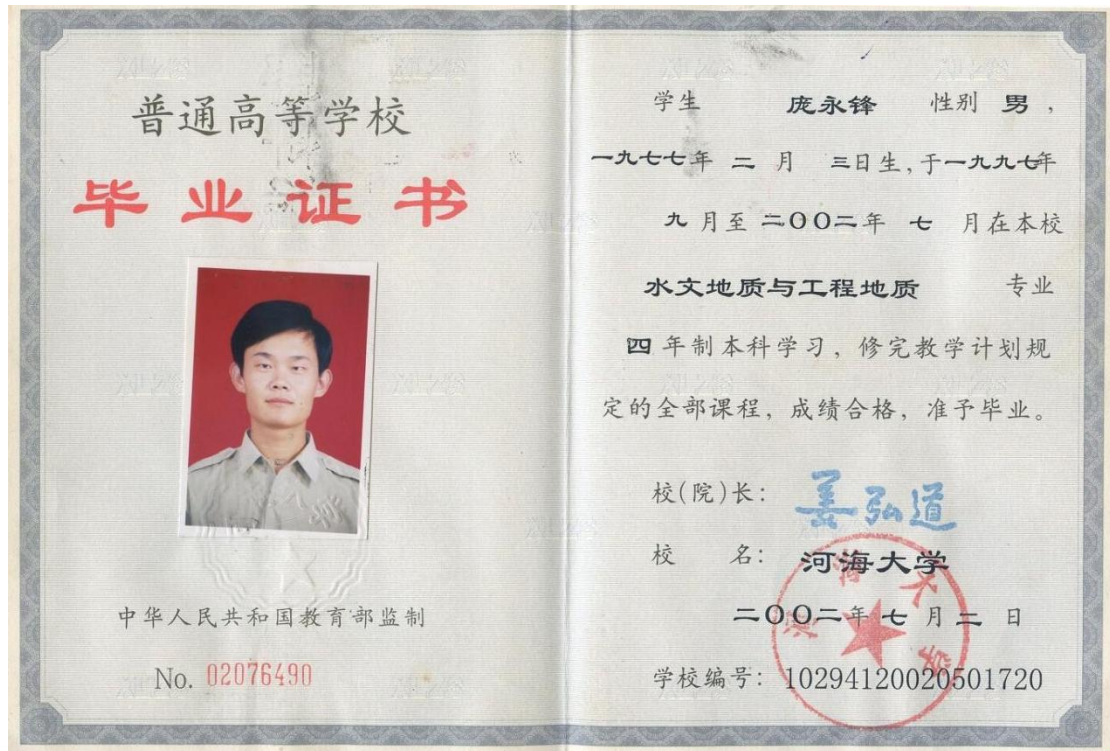 普通高等学校
毕业证书
中华人民共和国教育部监制
No. 02076490
学生 庞永锋 性别 男，
一九七七年 二 月 三日生，于一九九七年
九 月至 二〇〇二年 七 月在本校
水文地质与工程地质 专业
四 年制本科学习，修完教学计划规
定的全部课程，成绩合格，准予毕业。
校(院)长： 姜弘道
校 名： 河海大学
河海大学
二〇〇二年 七 月 二 日
学校编号： 10294120020501720